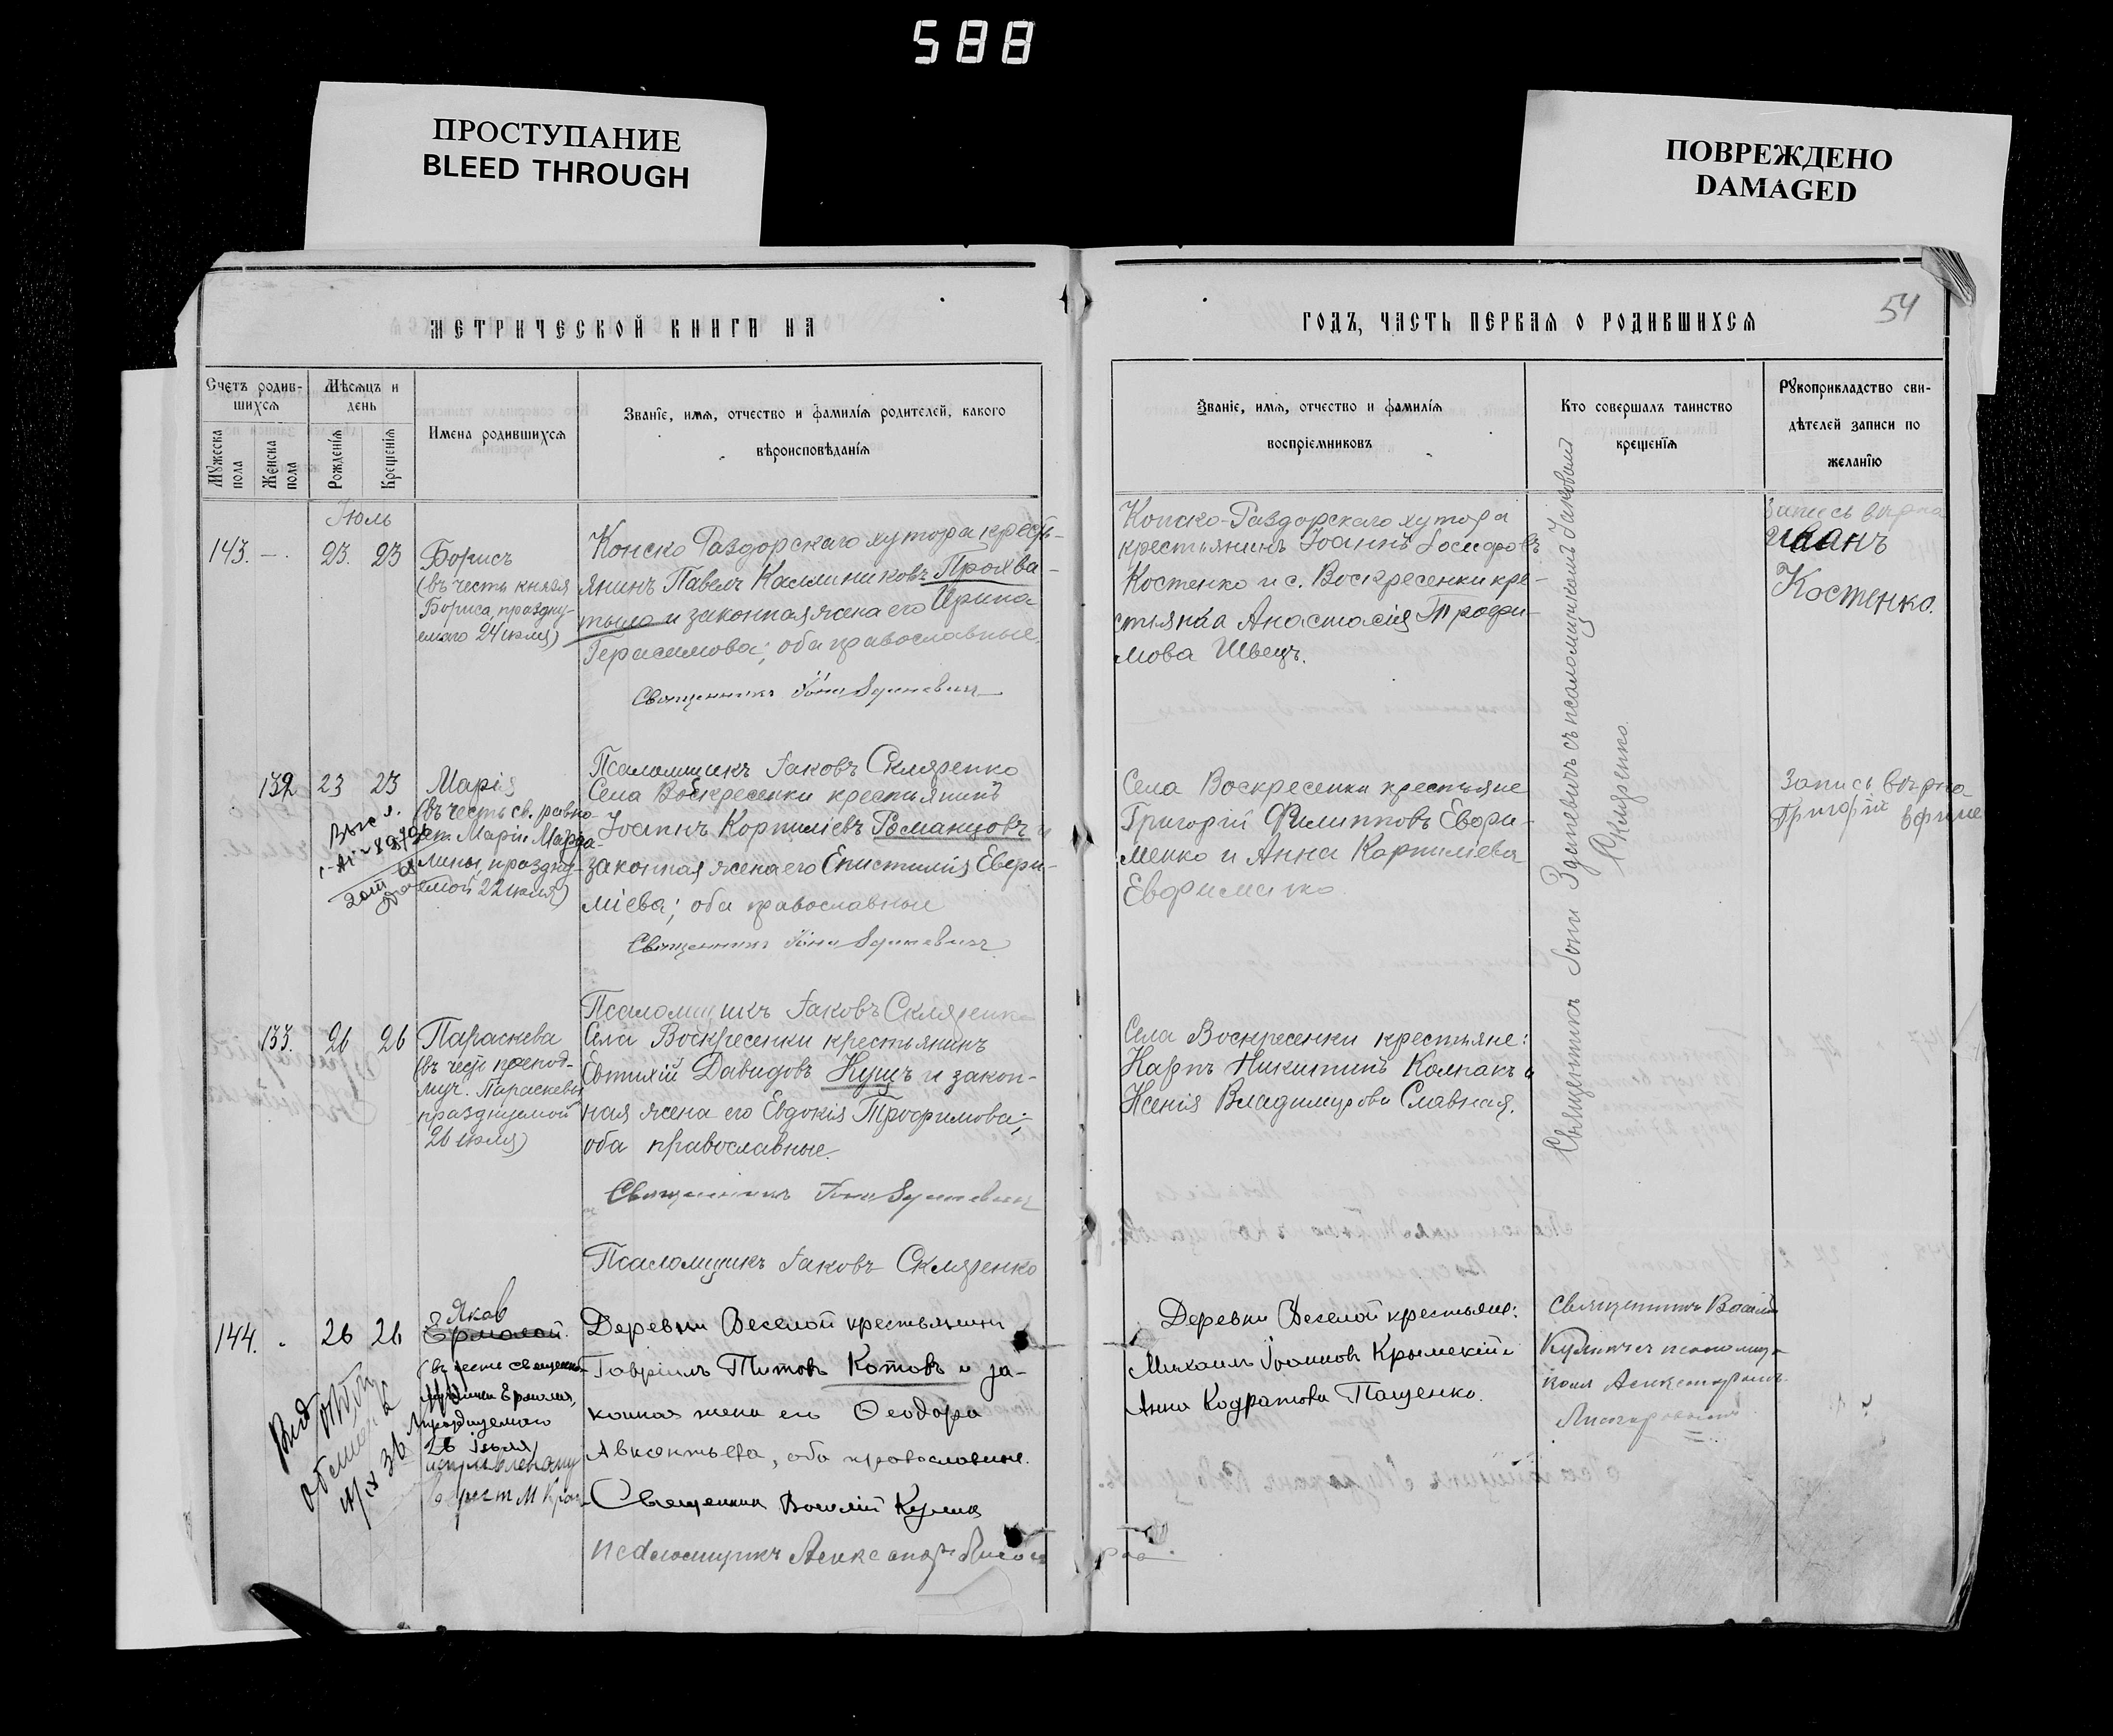 588
ПРОСТУПАНИЕ
BLEED THROUGH
ПОВРЕЖДЕНО
DAMAGED
МЕТРИЧЕСКОЙ КНИГИ НА
ГОДЪ, ЧАСТЬ ПЕРВАЯ О РОДИВШИХСЯ
54
Счетъ родив-
шихся
Мужеска пола
Женска пола
Мѣсяцъ и
день
Рожденія
Крещенія
Имена родившихся
Званіе, имя, отчество и фамилія родителей, какого
вѣроисповѣданія
Званіе, имя, отчество и фамилія
воспріемниковъ
Кто совершалъ таинство
крещенія
Рукоприкладство сви-
дѣтелей записи по
желанію
Іюль
143. — 23. 23
Борисъ
(въ честь князя
Бориса, праздну-
емаго 24 июля)
Конско Раздорскаго хутора кресть-
янинъ Павелъ Каллиниковъ
и законная жена его Ирина
Герасимова; оба православные.
Священникъ Іона
Псаломщикъ Іаковъ Скляренко
Конско-Раздорскаго хутора
крестьянинъ Іоаннъ Іосифовъ
Костенко и с. Воскресенки кре-
стьянка Анастасія Трофи-
мова Швецъ.
Запись вѣрна
Иванъ
Костенко.
Священникъ Іона Зденевичъ съ псаломщикомъ Іаковомъ
Скляренко.
132 23 23
Марія
(въ честь св. равно-
ап. Маріи Магда-
лины, праздну-
емой 22 июля)
Села Воскресенки крестьянинъ
Іоаннъ Корниліевъ Романцовъ и
законная жена его Епистимія Евфи-
міева; оба православные
Священникъ Іона
Псаломщикъ Іаковъ Скляренко
Села Воскресенки крестьяне
Григорій Филипповъ Евфи-
менко и Анна Корниліева
Евфименко
Запись вѣрна
Григорій
133. 26 26
Параскева
(въ честь препод-
муч. Параскевы
празднуемой
26 июля)
Села Воскресенки крестьянинъ
Евтихій Давидовъ Кущъ и закон-
ная жена его Евдокія Трофимова;
оба православные.
Священникъ Іона
Псаломщикъ Іаковъ Скляренко
Села Воскресенки крестьяне:
Карпъ Никитинъ Колпакъ и
Ксенія Владимірова Славная.
144. 26 26
Яков
Ермолай.
(въ честь священно-
мученика Ермолая,
празднуемаго
26 Іюля)
Деревни Веселой крестьянинъ
Гавріилъ Титовъ Котовъ и за-
конная жена его Феодора
Авксентьева, оба православные.
Священникъ Василій Кулик
Псаломщикъ Александръ
Деревни Веселой крестьяне:
Михаилъ Іоанновъ Крымскій и
Анна Кодратова Пащенко.
Священникъ Василій
Куликъ съ псаломщи-
комъ Александромъ